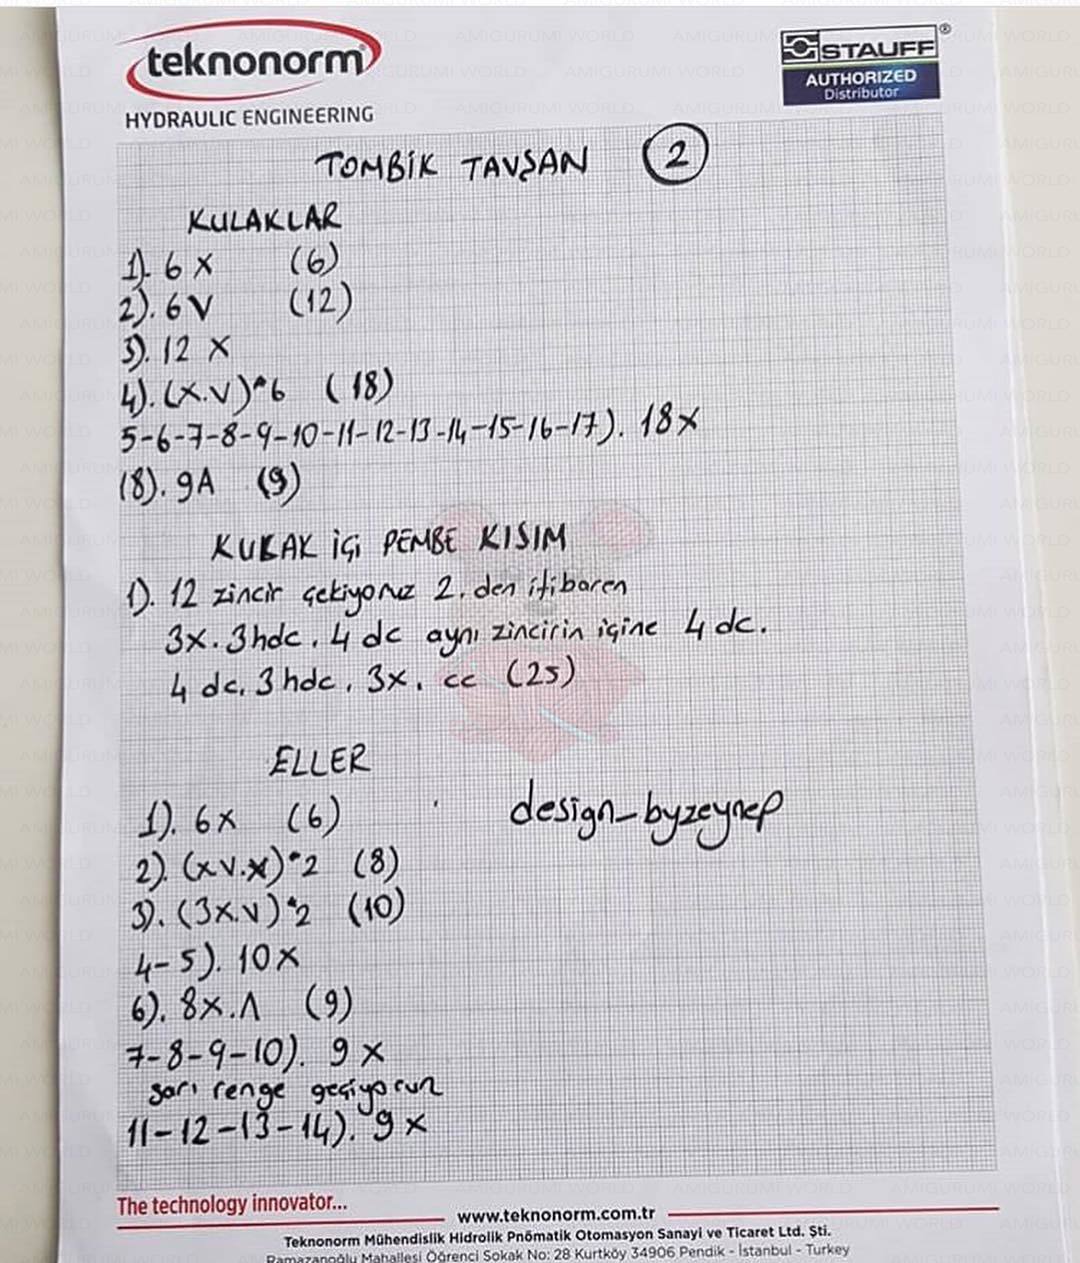 teknonorm
HYDRAULIC ENGINEERING
STAUFF®
AUTHORIZED
Distributor
TOMBİK TAVŞAN 2
KULAKLAR
1). 6 X (6)
2). 6 V (12)
3). 12 X
4). (X.V)*6 (18)
5-6-7-8-9-10-11-12-13-14-15-16-17). 18X
18). 9A (9)
KULAK İÇİ PEMBE KISIM
1). 12 zincir çekiyoruz 2. den itibaren
3x. 3hdc. 4 dc aynı zincirin içine 4 dc.
4 dc. 3 hdc. 3x. cc (25)
ELLER
1). 6x (6)
design_byzeynep
2). (xv.x)*2 (8)
3). (3x.v)*2 (10)
4-5). 10x
6). 8x.Λ (9)
7-8-9-10). 9 x
sarı renge geçiyoruz
11-12-13-14). 9 x
The technology innovator...
www.teknonorm.com.tr
Teknonorm Mühendislik Hidrolik Pnömatik Otomasyon Sanayi ve Ticaret Ltd. Şti.
Ramazanoğlu Mahallesi Öğrenci Sokak No: 28 Kurtköy 34906 Pendik - İstanbul - Turkey
AMIGURUMI WORLD